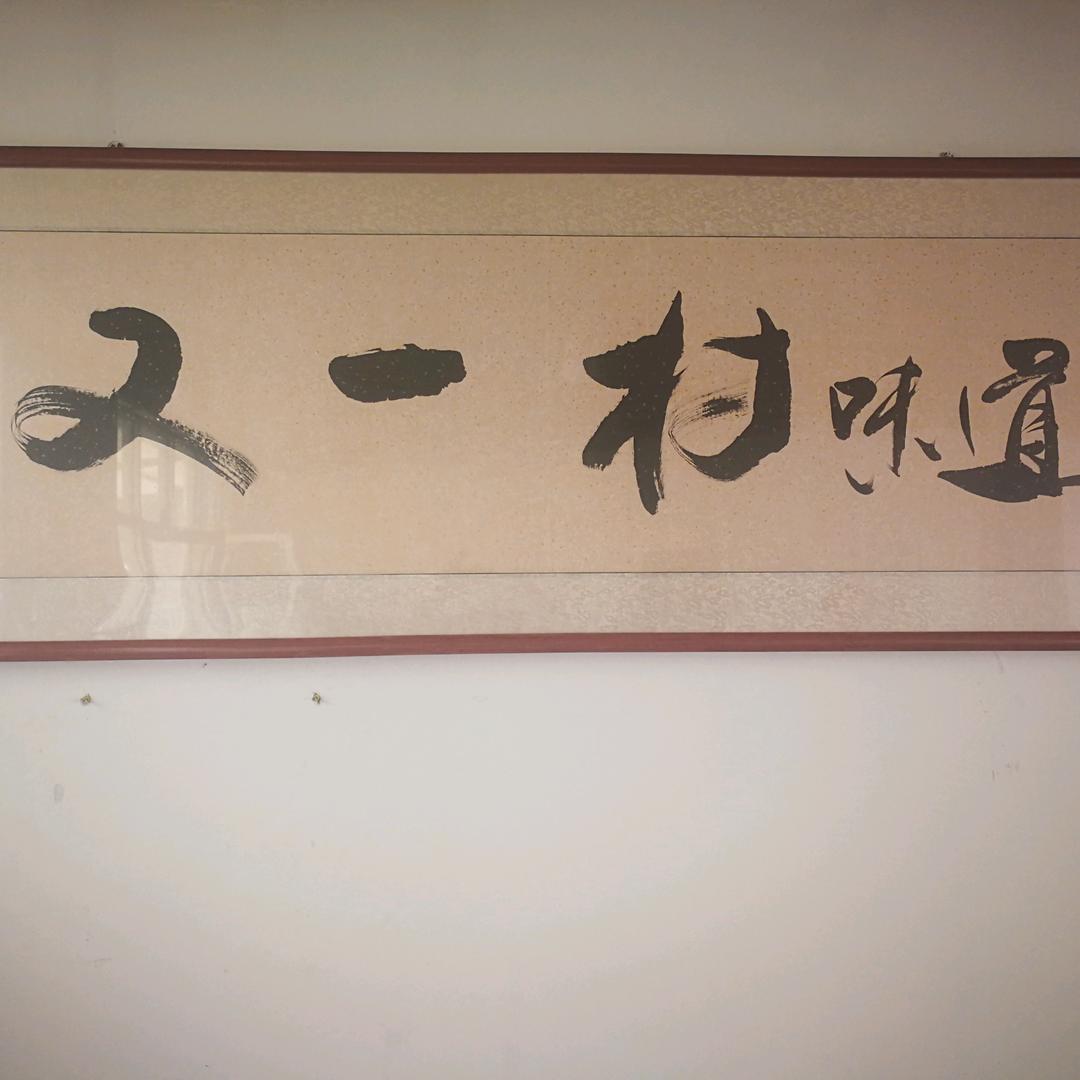 又一村味道